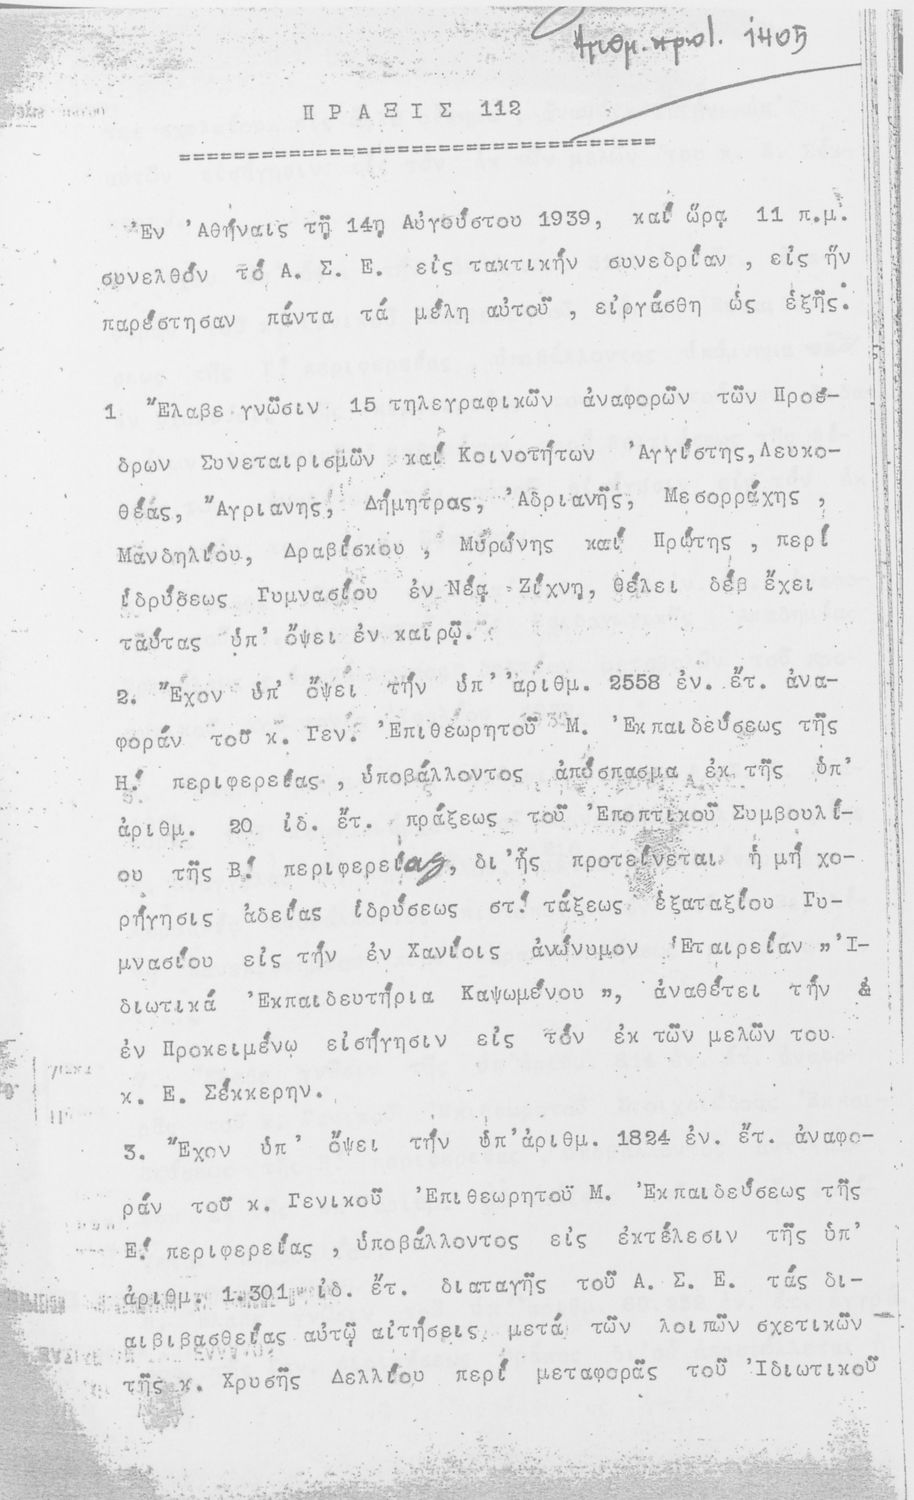 Αριθμ. πρωτ. 1405
Π Ρ Α Ξ Ι Σ 112
=====================================
Ἐν Ἀθήναις τῇ 14ῃ Αὐγούστου 1939, καί ὥρᾳ 11 π.μ.
συνελθόν τό Α. Σ. Ε. εἰς τακτικήν συνεδρίαν , εἰς ἥν
παρέστησαν πάντα τά μέλη αὐτοῦ , εἰργάσθη ὡς ἑξῆς:
1 Ἔλαβε γνῶσιν 15 τηλεγραφικῶν ἀναφορῶν τῶν Προέ-
δρων Συνεταιρισμῶν καί Κοινοτήτων Ἀγγίστης,Λευκο-
θέας, Ἄγριανης, Δήμητρας, Ἀδριανῆς, Μεσορράχης ,
Μανδηλίου, Δραβίσκου , Μυρώνης καί Πρώτης , περί
ἱδρύσεως Γυμνασίου ἐν Νέᾳ Ζίχνῃ, θέλει δέβ ἔχει
ταύτας ὑπ' ὄψει ἐν καιρῷ.
2. Ἔχον ὑπ' ὄψει τήν ὑπ' ἀριθμ. 2558 ἐν. ἔτ. ἀνα-
φοράν τοῦ κ. Γεν. Ἐπιθεωρητοῦ Μ. Ἐκπαιδεύσεως τῆς
Η! περιφερείας , ὑποβάλλοντος ἀπόσπασμα ἐκ τῆς ὑπ'
ἀριθμ. 20 ἰδ. ἔτ. πράξεως τοῦ Ἐποπτικοῦ Συμβουλί-
ου τῆς Β! περιφερείας, δι'ἧς προτείνεται ἡ μή χο-
ρήγησις ἀδείας ἱδρύσεως στ! τάξεως ἑξαταξίου Γυ-
μνασίου εἰς τήν ἐν Χανίοις ἀνώνυμον Ἑταιρείαν "Ἰ-
διωτικά Ἐκπαιδευτήρια Καψωμένου", ἀναθέτει τήν ἐ
ἐν Προκειμένῳ εἰσήγησιν εἰς τόν ἐκ τῶν μελῶν του
κ. Ε. Σέκκερην.
3. Ἔχον ὑπ' ὄψει τήν ὑπ'ἀριθμ. 1824 ἐν. ἔτ. ἀναφο-
ράν τοῦ κ. Γενικοῦ Ἐπιθεωρητοῦ Μ. Ἐκπαιδεύσεως τῆς
Ε! περιφερείας , ὑποβάλλοντος εἰς ἐκτέλεσιν τῆς ὑπ'
ἀριθμ. 1.301 ἰδ. ἔτ. διαταγῆς τοῦ Α. Σ. Ε. τάς δι-
αιβιβασθείας αὐτῷ αἰτήσεις μετά τῶν λοιπῶν σχετικῶν
τῆς κ. Χρυσῆς Δελλίου περί μεταφορᾶς τοῦ Ἰδιωτικοῦ